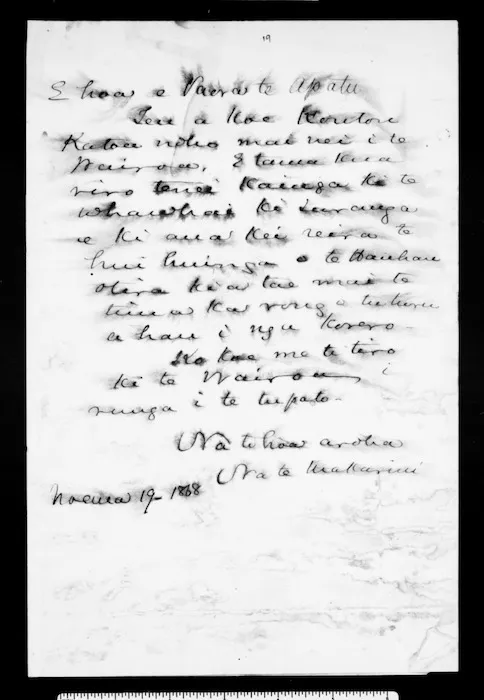 19
E hoa e Paora te Apatu
Tena koe Koutou
Katoa noho mai nei i te
Wairoa, E tama kua
riro tenei Kainga ki te
whawhai ki Turanga
e ki ana kei reira te
hui huinga o te Hauhau
otira kia tae mai te
tima ka rongo tuturu
ahau i nga Korero-
Ko koe me titiro
ki te Wairoa i
runga i te tupato-
Na to hoa aroha
Na te Makarini
Noema 19- 1868